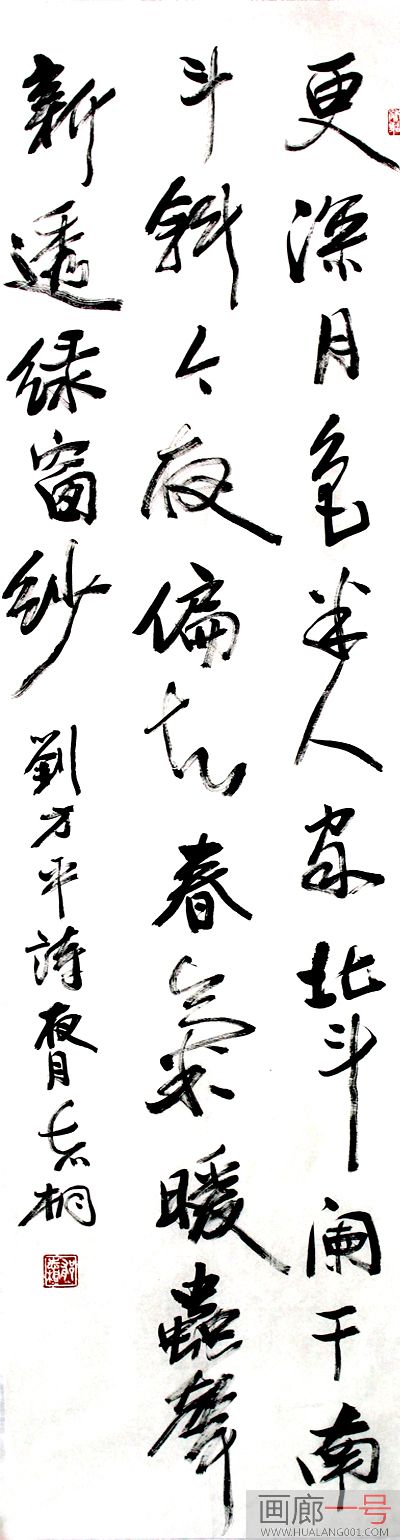 更深月色半人家北斗阑干南
斗斜今夜偏知春氣暖蟲聲
新透绿窗纱
劉方平詩夜月
画廊一号
WWW.HUALANG001.COM